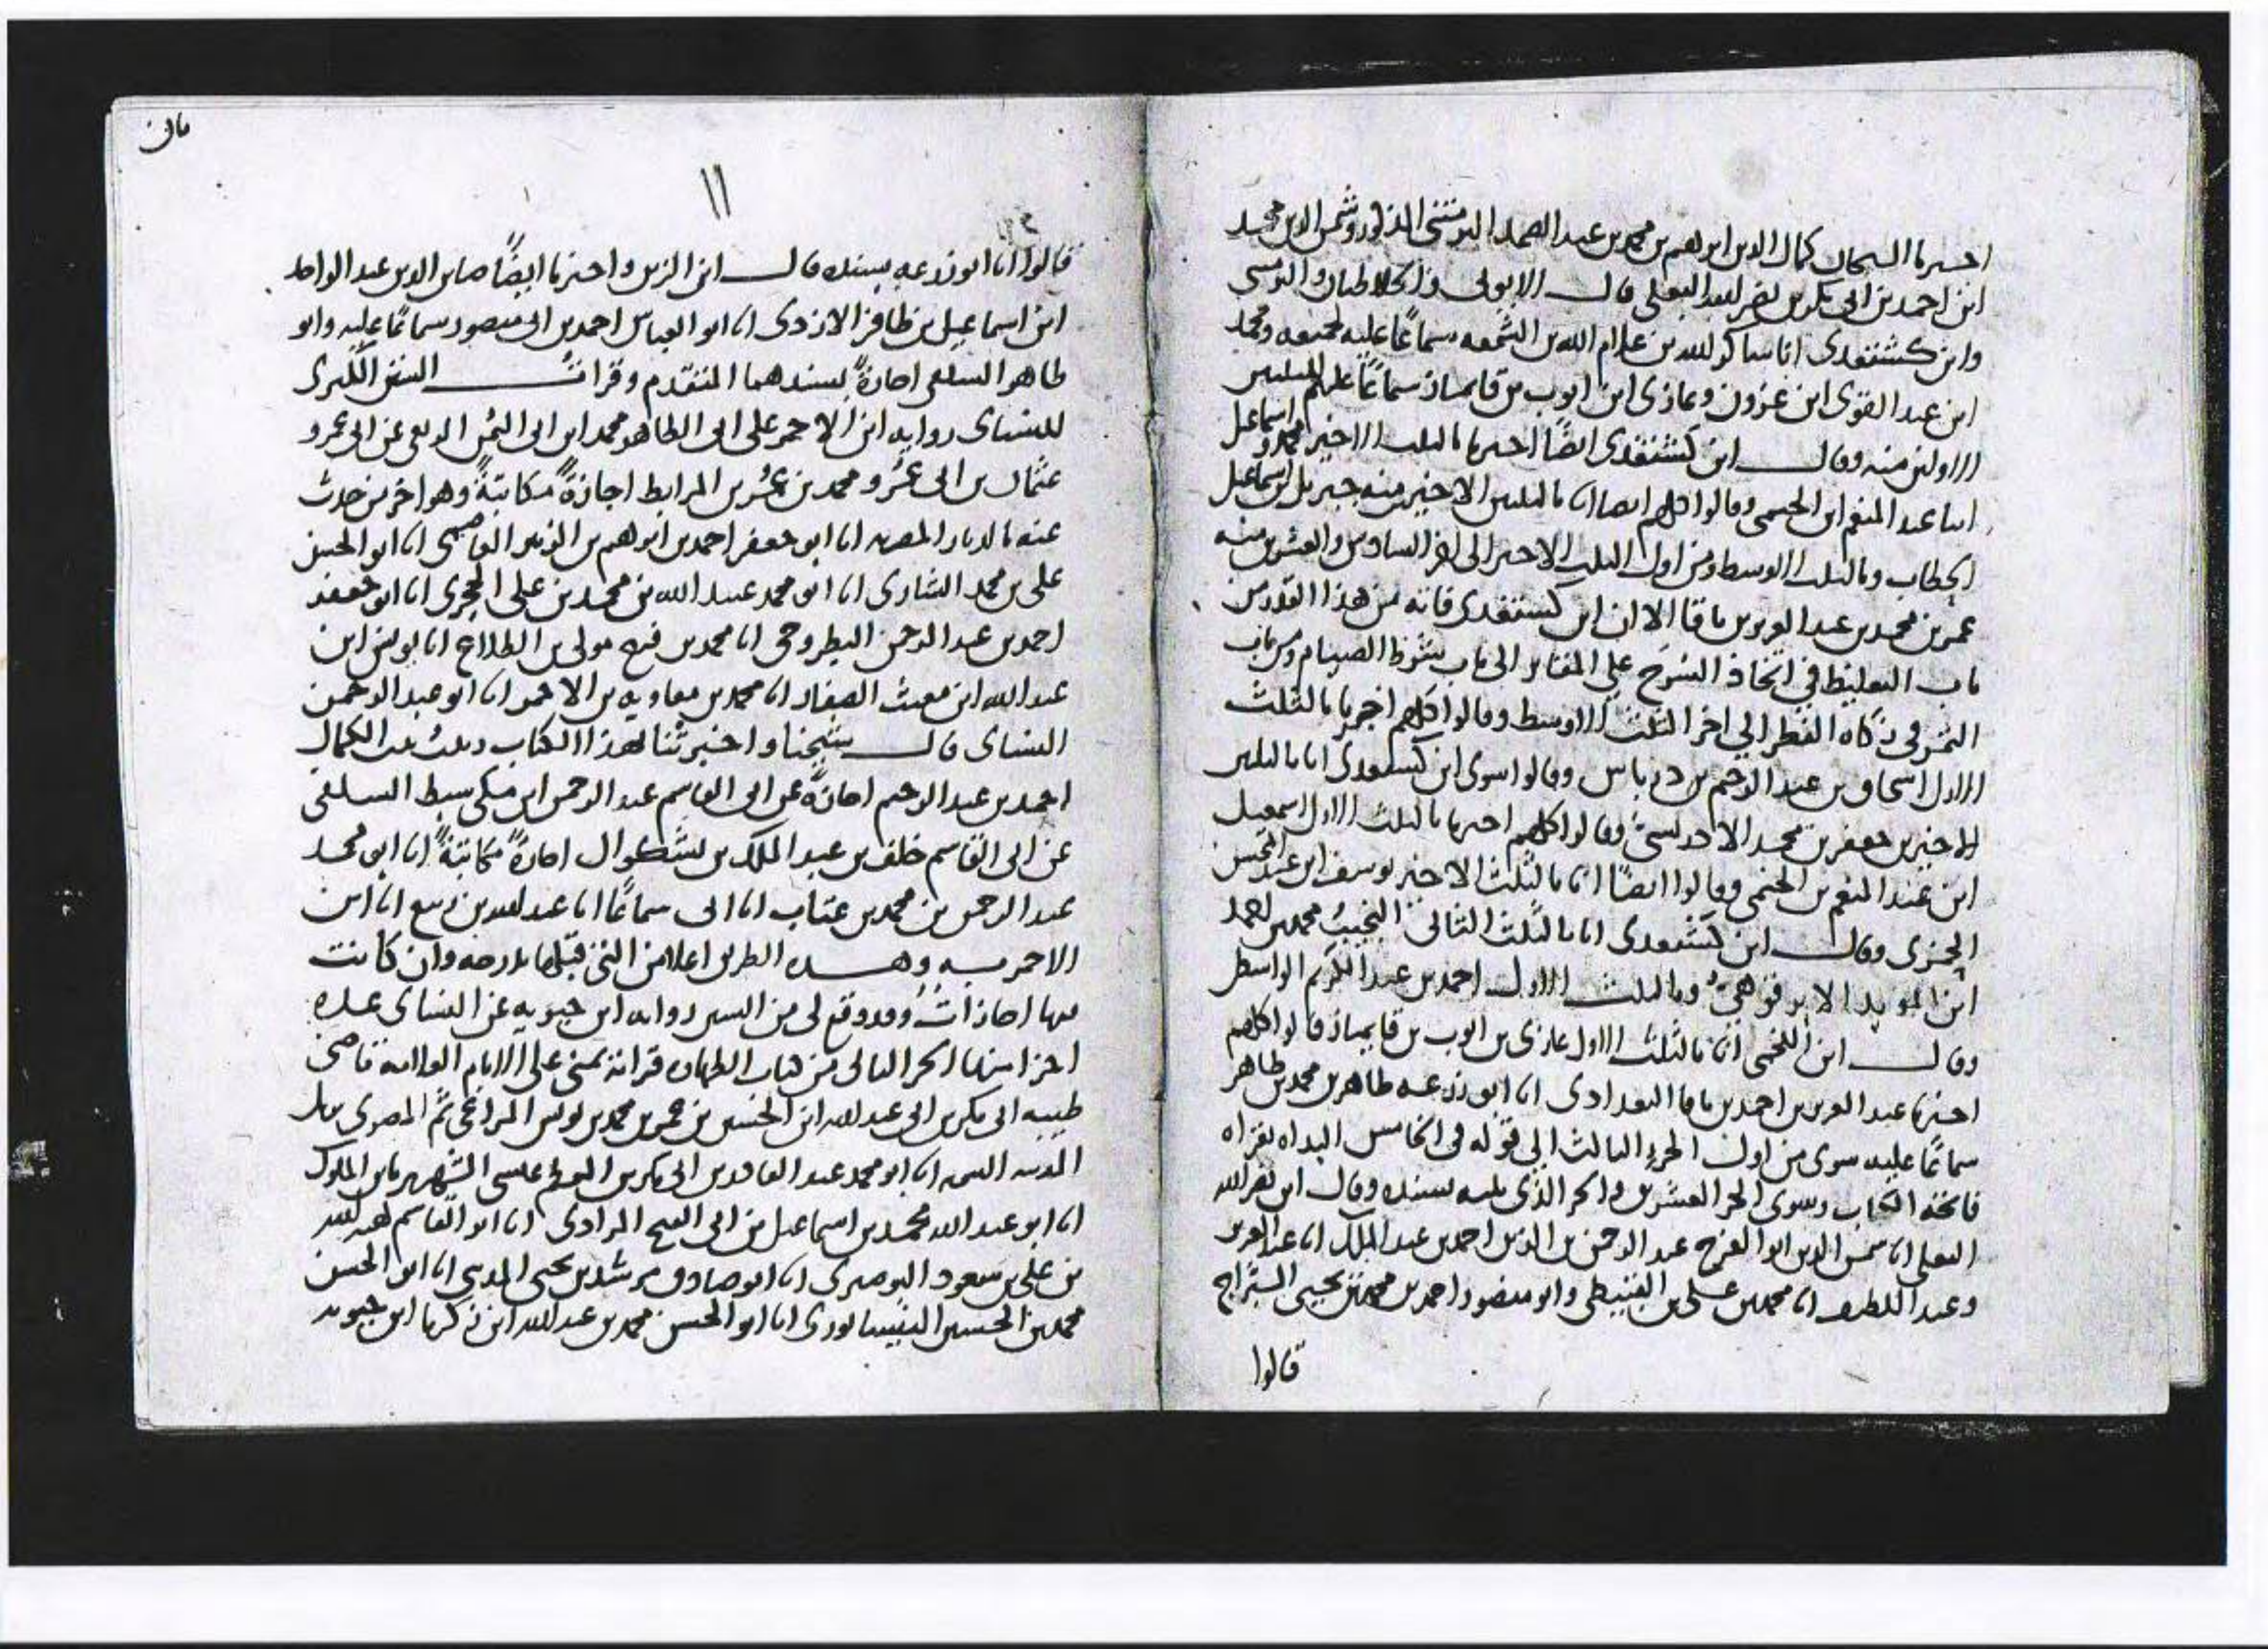 اخبرنا الشيخان كمال الدين ابراهيم بن محمد بن عبد الصمد التزمنتي المذكور وشمس الدين محمد
ابن احمد بن ابى بكر بن نصر الله البعلى قال الايوبى والخلاطيان والتونسى
وابن كشتغدى انا شاكر لله بن غلام الله بن الشمعه سماعا عليه لجميعه ومحمد
ابن عبد القوى ابن عزون وغازى ابن ايوب بن قايماز سماعًا عليهم للثلثين
الاولين منه وقال ابن كشتغدى ايضًا اخبرنا بالثلث الاخير محمد واسماعيل
ابنا عبد المنعم ابن الخيمى وقالوا كلهم ايضا انا بالثلثين الاخيرين منه جبريل بن اسماعيل
الخطاب وبالثلث الاوسط ومن اول الثلث الاخير الى اخر السادس والعشرين منه
عمر بن محمد بن عبد العزيز بن باقا الا ان ابن كشتغدى فاته من هذا القدر من
باب التغليظ في اتخاذ السرج على المقابر الى باب شروط الصيام ومن باب
التمر في زكاه الفطر الي اخر الثلث الاوسط وقالوا كلهم اخبرنا بالثلث
الاول اسحاق بن عبد الرحيم بن درباس وقالوا سوى ابن كشتغدى انا بالثلثين
الاخيرين جعفر بن محمد الادريسيُ وقالوا كلهم اخبرنا بالثلث الاول اسمعيل
ابن عبد المنعم بن الخيمى وقالوا ايضًا انا بالثلث الاخير يوسف ابن عبد المحسن
الحمزى وقال ابن كشتغدى انا بالثلث الثانى النجيبُ محمد بن احمد
ابن المويد الابرقوهيُ وبالثلث الاول احمد بن عبد الكريم الواسطى
وقال ابن اللخمى انا بالثلث الاول غازى بن ايوب بن قايماز قالوا كلهم
اخبرنا عبد العزيز بن احمد بن باقا البغدادى انا ابو زرعه طاهر بن محمد بن طاهر
سماعًا عليه سوى من اول الجزء الثالث الى قوله فى الخامس البداه بقراه
فاتحه الكتاب وسوى الجز العشرين والجز الذى يليه بسنده وقال ابن نصر الله
البعلى انا شمس الدين ابو الفرج عبد الرحمن بن الزين احمد بن عبد الملك انا عبد العزيز
وعبد اللطيف انا محمد بن على بن القبيطى وابو منصور احمد بن محمد بن يحيى السراج
قالوا
١١
قالوا انا ابو زرعه بسنده قال ابن الزين واخبرنا ايضًا صاين الدين عبد الواحد
ابن اسماعيل بن ظافر الازدى انا ابو العباس احمد بن ابى منصور سماعًا عليه وابو
طاهر السلفى اجازةً بسندهما المتقدم وقرات السنن الكبرى
للنساى روايه ابن الاحمر على ابى الطاهر محمد ابن ابى اليمن الربعى عن ابى عمرو
عثمان بن ابى عمرو محمد بن عمر بن المرابط اجازةً مكاتبةً وهو اخر من حدث
عنه بالديار المصريه انا ابو جعفر احمد بن ابراهيم بن الزبير العاصمى انا ابو الحسن
على بن محمد الشارى انا ابو محمد عبيد الله بن محمد بن على الحجرى انا ابو جعفر
احمد بن عبد الرحمن البطروجى انا محمد بن فرج مولى بن الطلاع انا يونس ابن
عبد الله ابن مغيث الصفار انا محمد بن معاويه بن الاحمر انا ابو عبد الرحمن
النساى قال شيخنا واخبرتنا بهذا الكتاب زينبُ بنت الكمال
احمد بن عبد الرحيم اجازةً عن ابى القاسم عبد الرحمن ابن مكى سبط السلفى
عن ابى القاسم خلف بن عبد الملك بن بشكوال اجازةً مكاتبةً انا ابو محمد
عبد الرحمن بن محمد بن عتاب انا ابى سماعًا انا عبد الله بن ربيع انا ابن
الاحمر به وهذه الطريق اعلا من التى قبلها بدرجه وان كانت
فيها اجازاتُ وقد وقع لى من السنن روايه ابن حيويه عن النساى عده
اجزا منها الجز الثانى من كتاب الطهاره قراته بمنى على الامام العلامه قاضى
طيبه ابى بكر بن ابى عبد الله ابن الحسين بن عمر بن محمد بن يونس المراغى ثم المصرى نزيل
المدينه النبويه انا ابو محمد عبد القادر بن ابى بكر بن ابى عيسى الشهير بابن الملوك
انا ابو عبد الله محمد بن اسماعيل بن ابى الفتح المرادى انا ابو القاسم هبه الله
بن على بن سعود البوصيرى انا ابو صادق مرشد بن يحيى المدينى انا ابو الحسن
محمد بن الحسين النيسابورى انا ابو الحسن محمد بن عبد الله ابن زكريا ابن حيويه